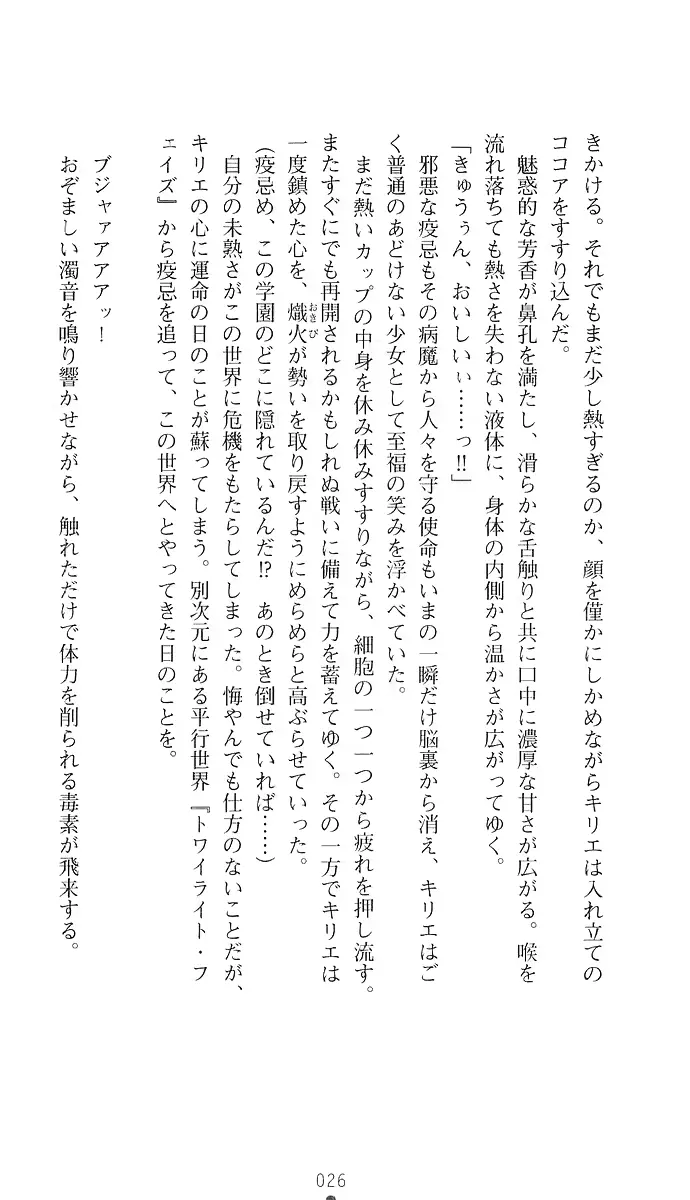 きかける。それでもまだ少し熱すぎるのか、顔を僅かにしかめながらキリエは入れ立ての
ココアをすすり込んだ。
魅惑的な芳香が鼻孔を満たし、滑らかな舌触りと共に口中に濃厚な甘さが広がる。喉を
流れ落ちても熱さを失わない液体に、身体の内側から温かさが広がってゆく。
「きゅうぅん、おいしいぃ……っ!!」
邪悪な疫忌もその病魔から人々を守る使命もいまの一瞬だけ脳裏から消え、キリエはご
く普通のあどけない少女として至福の笑みを浮かべていた。
まだ熱いカップの中身を休み休みすすりながら、細胞の一つ一つから疲れを押し流す。
またすぐにでも再開されるかもしれぬ戦いに備えて力を蓄えてゆく。その一方でキリエは
一度鎮めた心を、熾火おきびが勢いを取り戻すようにめらめらと高ぶらせていった。
(疫忌め、この学園のどこに隠れているんだ!? あのとき倒せていれば……)
自分の未熟さがこの世界に危機をもたらしてしまった。悔やんでも仕方のないことだが、
キリエの心に運命の日のことが蘇ってしまう。別次元にある平行世界『トワイライト・フ
ェイズ』から疫忌を追って、この世界へとやってきた日のことを。
ブジャァアアアッ!
おぞましい濁音を鳴り響かせながら、触れただけで体力を削られる毒素が飛来する。
026